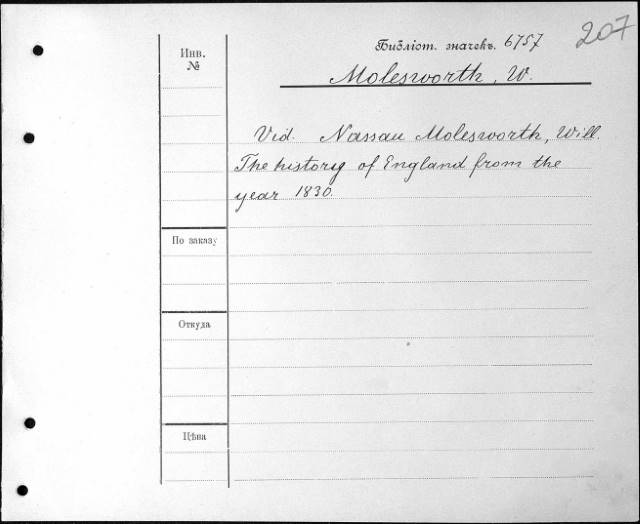 207
Библіот. значекъ. 6757
Инв.
№
Molesworth, W.
Vid. Nassau Molesworth, Will.
The history of England from the
year 1830.
По заказу
Откуда
Цѣна